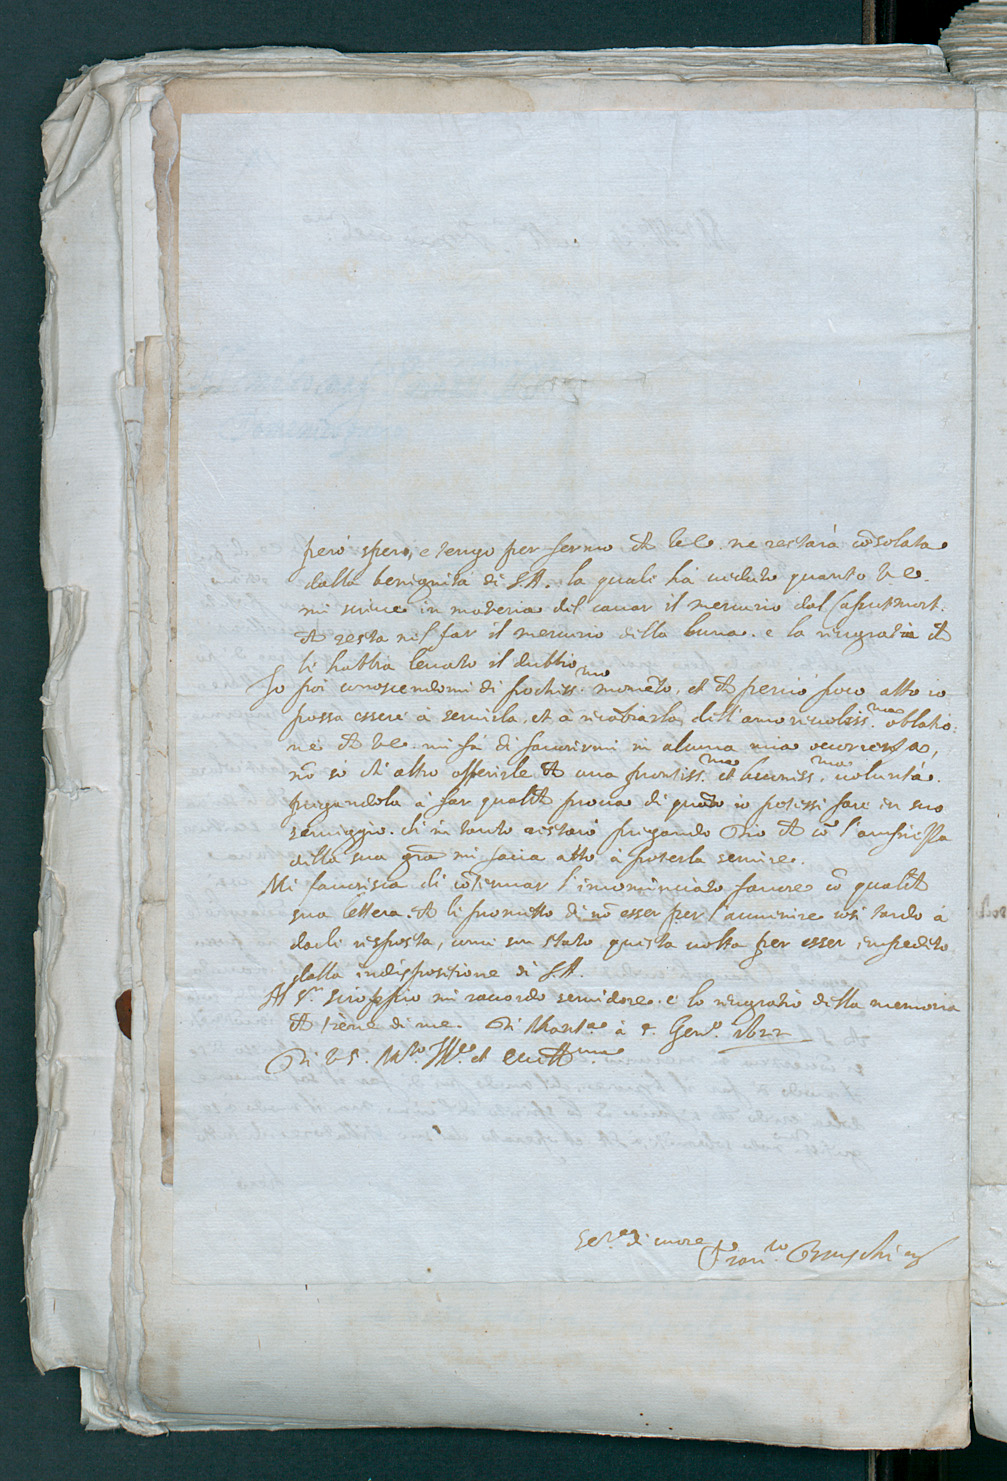 però spero, e tengo per fermo ch V.E. ne restarà cõsolata
dalla benignità di S.A. la quale hà veduto quanto V.E.
mi scrive in materia del cavar il mercurio dal Caputmort.
ch resta nel far il mercurio della luna. e la ringratia ch
li habbia levato il dubbio
Io poi conoscendomi di pochiss.mo momẽto, et ch perciò poco atto io
possa essere à servirla, et à ricãbiarla dell'amorevoliss.ma oblatio:
ne ch V.E. mi fà di favorirmi in alcuna mia occorrenza,
nõ sò ch altro offerirle ch una prontiss.ma et humiliss.ma voluntà.
pregandola à far qualch prova di quãto io potessi fare in suo
serviggio. ch in tanto restarò pregando Dio ch cõ l'ampiezza
della sua grã mi facia atto à poterla servire.
Mi favorisca di cõtinuar l'incominciato favore cõ qualch
sua lettera. ch li prometto di nõ esser per l'avvenire così tardo à
darli risposta, come son stato questa volta per esser impedito
dalla indispositione di S.A.
Al S.r mi racordo servidore. e lo ringratio della memoria
ch tiene di me. Di Mant.a à Gen.o 1622
Di V.S. M.to Ill.e et Ecc.ma
Ser.re di core
Fran.co Bruschi